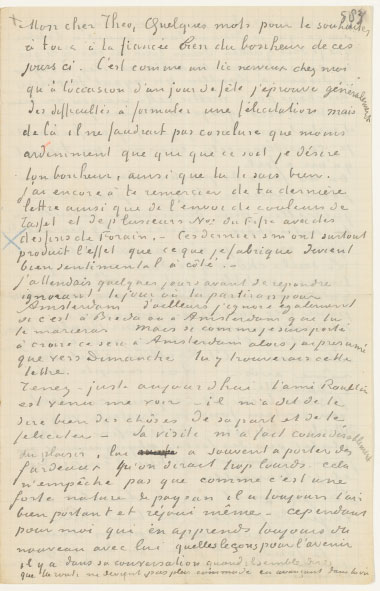 583
Mon cher Theo, Quelques mots pour te souhaiter
à toi & à ta fiancée bien du bonheur de ces
jours ci. C'est comme un tic nerveux chez moi
qu'à l'occasion d'un jour de fête j'éprouve généralement
des difficultés à formuler une félicitation mais
de là il ne faudrait pas conclure que moins
ardemment que qui que ce soit je désire
ton bonheur, ainsi que tu le sais bien.
J'ai encore à te remercier de ta dernière
lettre ainsi que de l'envoi de couleurs de
Tasset et de plusieurs Nos. du Fifre avec des
dessins de Forain. — Ces derniers m'ont surtout
produit l'effet que ce que je fabrique devient
bien sentimental à côté. —
J'attendais quelques jours avant de répondre
ignorant le jour où tu partirais pour
Amsterdam d'ailleurs j'ignore également
si c'est à Breda ou à Amsterdam que tu
te marieras Mais si comme je suis porté
à croire ce sera à Amsterdam alors j'ai présumé
que vers Dimanche tu y trouverais cette
lettre.
Tenez — juste aujourd'hui l'ami Roulin
est venu me voir — il m'a dit de te
dire bien des choses de sa part et de te
féliciter — Sa visite m'a fait considérablement
du plaisir lui a souvent à porter des
fardeaux qu'on dirait trop lourds cela
n'empêche pas que comme c'est une
forte nature de paysan il a toujours l'air
bien portant et réjoui même — cependant
pour moi qui en apprends toujours du
nouveau avec lui quelles leçons pour l'avenir
il y a dans sa conversation quand il semble dire
que la route ne devient pas plus commode en avançant dans la vie